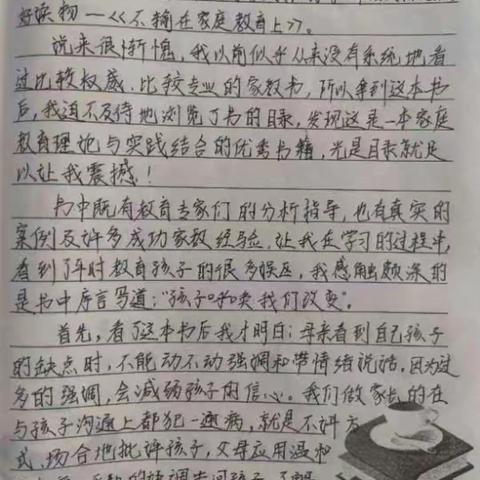 好读物一《不输在家庭教育上》。
说来很惭愧，我以前似乎从来没有系统地看
过比较权威、比较专业的家教书，所以拿到这本书
后，我迫不及待地浏览了书的目录，发现这是一本家庭
教育理论与实践结合的优秀书籍，光是目录就足
以让我震撼！
书中既有教育专家们的分析指导，也有真实的
案例及许多成功家教经验，让我在学习的过程中，
看到了平时教育孩子的很多误区，我感触颇深的
是书中序言写道："孩子
我们改变"。
首先，看了这本书后我才明白：母亲看到自己孩子
的缺点时，不能动不动强调和带情绪说话，因为过
多的强调，会减弱孩子的信心。我们做家长的在
与孩子沟通上都犯一通病，就是不讲方
式、场合地批评孩子，父母应用温和
的语调去问孩子，了解